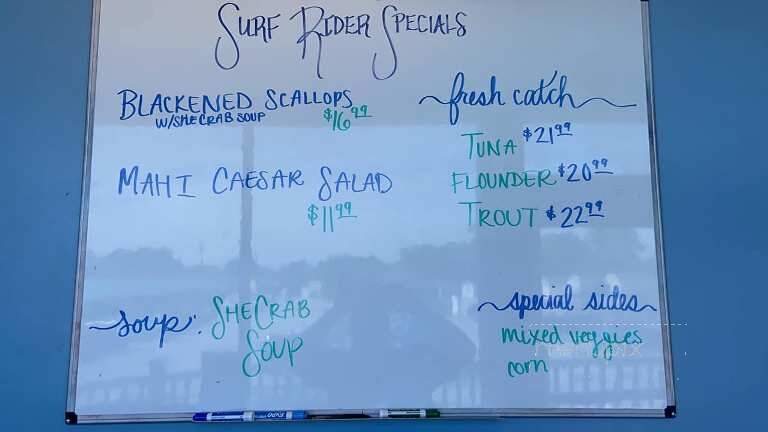 Surf Rider Specials
Blackened Scallops
w/SHE CRAB SOUP
$16.99
Mahi Caesar Salad
$11.99
Soup: SheCrab
Soup
fresh catch
Tuna $21.99
Flounder $20.99
Trout $22.99
special sides
mixed veggies
corn
EXPO